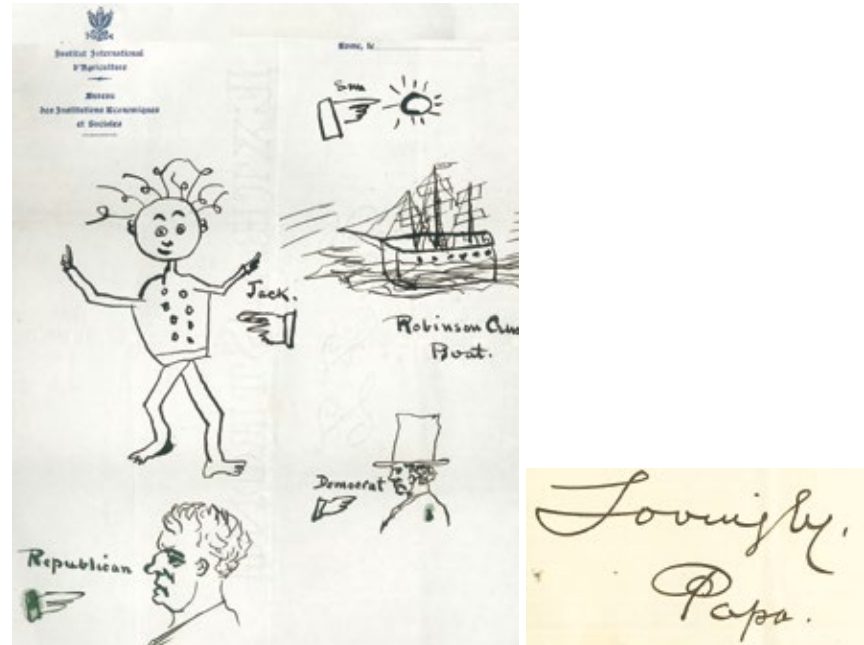 Institut International
d'Agriculture
Bureau
des Institutions Économiques
et Sociales
Rome, le
Sun
Jack.
Robinson Crus
Boat.
Democrat
Republican
Lovingly.
Papa.